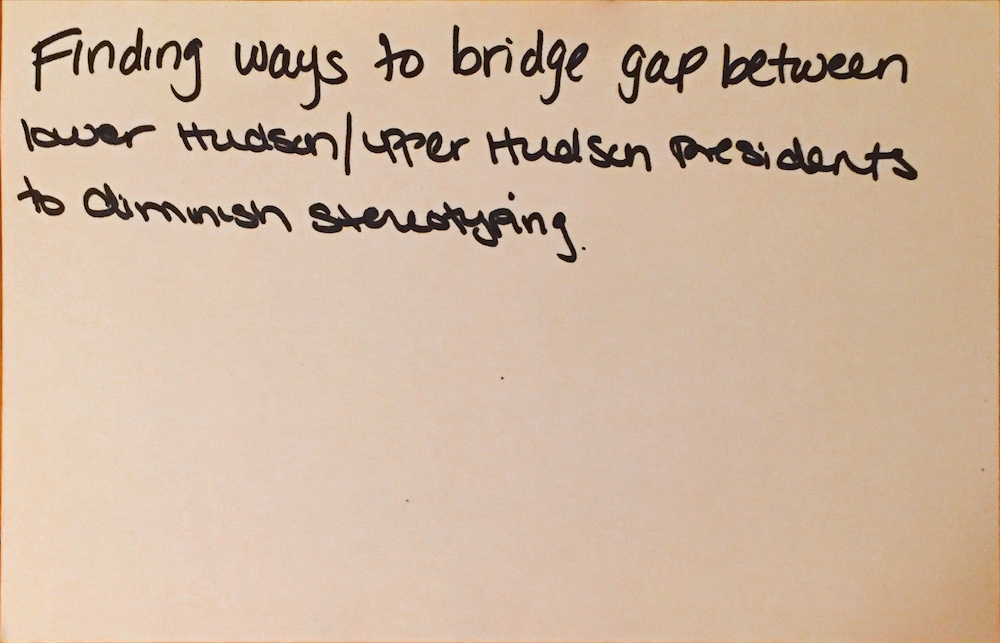 Finding ways to bridge gap between
lower Hudson/upper Hudson presidents
to diminish stereotyping.